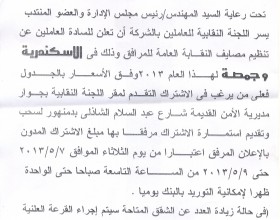 تحت رعاية السيد المهندس/رئيس مجلس الإدارة والعضو المنتدب
يسر اللجنة النقابية للعاملين بالشركة أن تعلن للسادة العاملين عن
تنظيم مصايف النقابة العامة للمرافق وذلك فى الاسكندرية
وجمصة لهذا العام ٢٠١٣ وفق الأسعار بالجدول
فعلى من يرغب فى الاشتراك التقدم لمقر اللجنة النقابية بجوار
مديرية الأمن القديمة شارع عبد السلام الشاذلى بدمنهور لسحب
وتقديم استمارة الاشتراك مرفقا بها مبلغ الاشتراك المدون
بالإعلان المرفق اعتبارا من يوم الثلاثاء الموافق ٢٠١٣/٥/٧
حتى ٢٠١٣/٥/٩ من الساعة التاسعة صباحا حتى الواحدة
ظهرا لإمكانية التوريد بالبنك يوميا .
(فى حالة زيادة العدد عن الشقق المتاحة سيتم إجراء القرعة العلنية